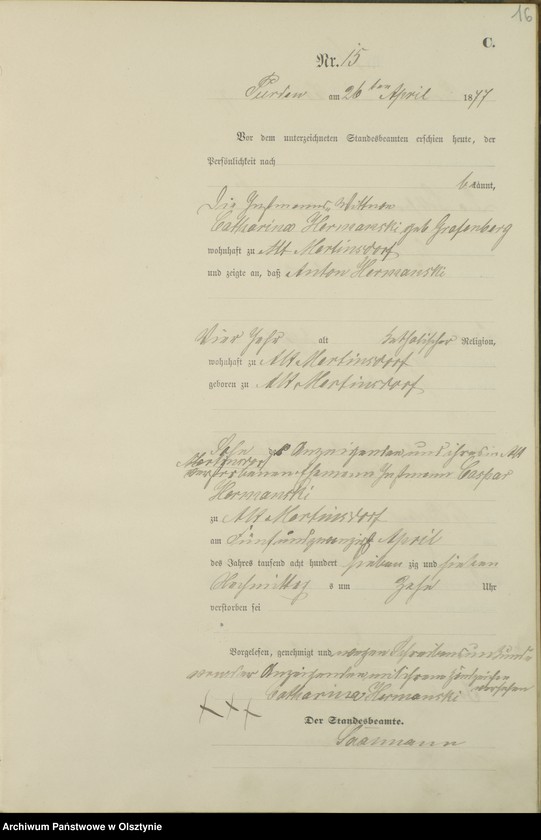 16
C.
Nr. 15
Purden am 26ten April 1877
Vor dem unterzeichneten Standesbeamten erschien heute, der
Persönlichkeit nach
bekannt,
Die Inßmanns Wittwe
Catharina Hermanski geb Grafenberg
wohnhaft zu Alt Martinsdorf
und zeigte an, daß Anton Hermanski
Vier Jahr alt katholischer Religion,
wohnhaft zu Alt Martinsdorf
geboren zu Alt Martinsdorf
Sohn der Anzeigenden und ihres in Alt
Martinsdorf
verstorbenen Ehemann Inßmann Caspar
Hermanski
zu Alt Martinsdorf
am fünfundzwanzig April
des Jahres tausend acht hundert sieben zig und sieben
Nachmittag s um Zehn Uhr
verstorben sei
Vorgelesen, genehmigt und wegen Schreibensunkunde
Anzeigenden mit ihrem Handzeichen
versehen
Catharina Hermanski
+++
Der Standesbeamte.
Saamann
Archiwum Państwowe w Olsztynie